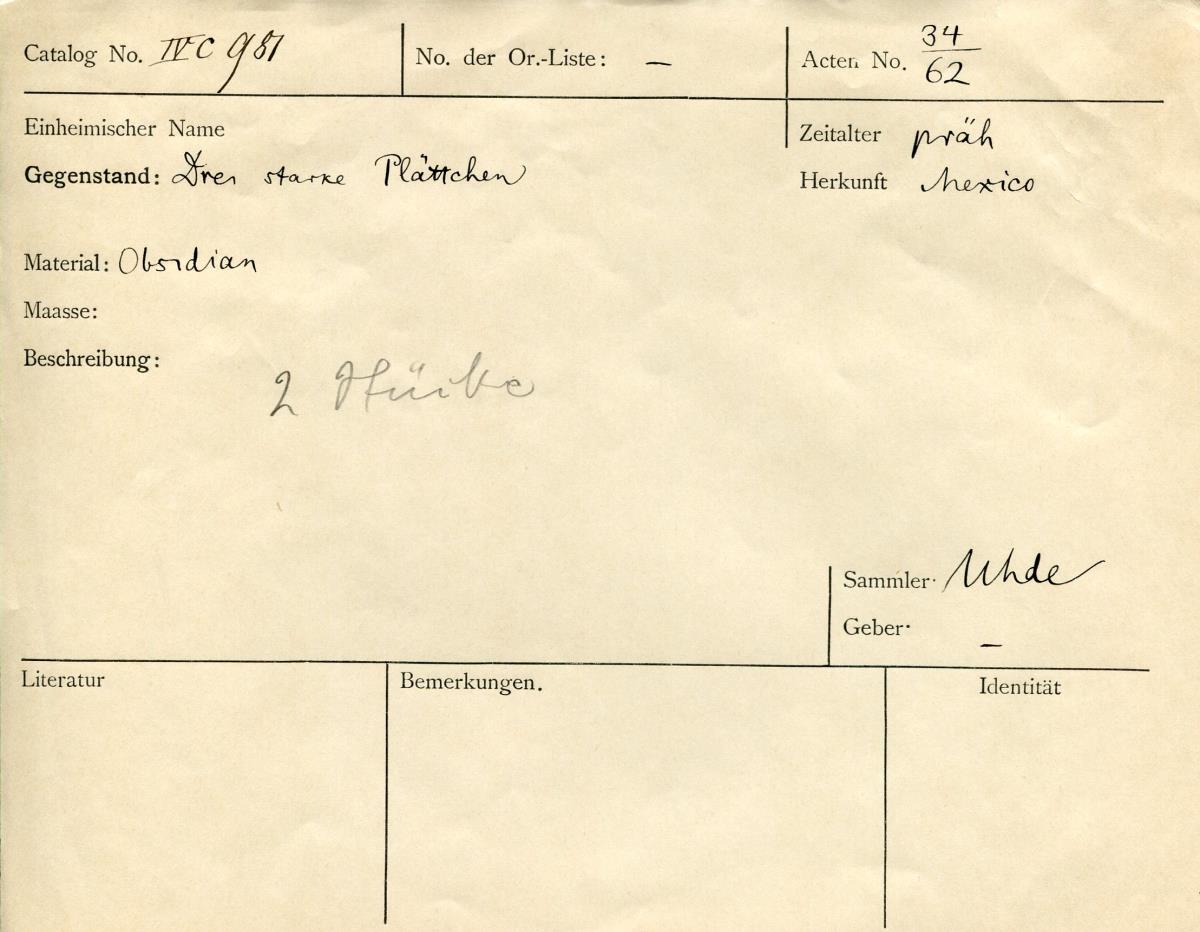 Catalog No. IV C 981
No. der Or.-Liste: –
Acten No. 34/62
Einheimischer Name
Zeitalter präh
Gegenstand: Drei starke Plättchen
Herkunft Mexico
Material: Obsidian
Maasse:
Beschreibung:
2 Stücke
Sammler· Uhde
Geber· –
Literatur
Bemerkungen.
Identität